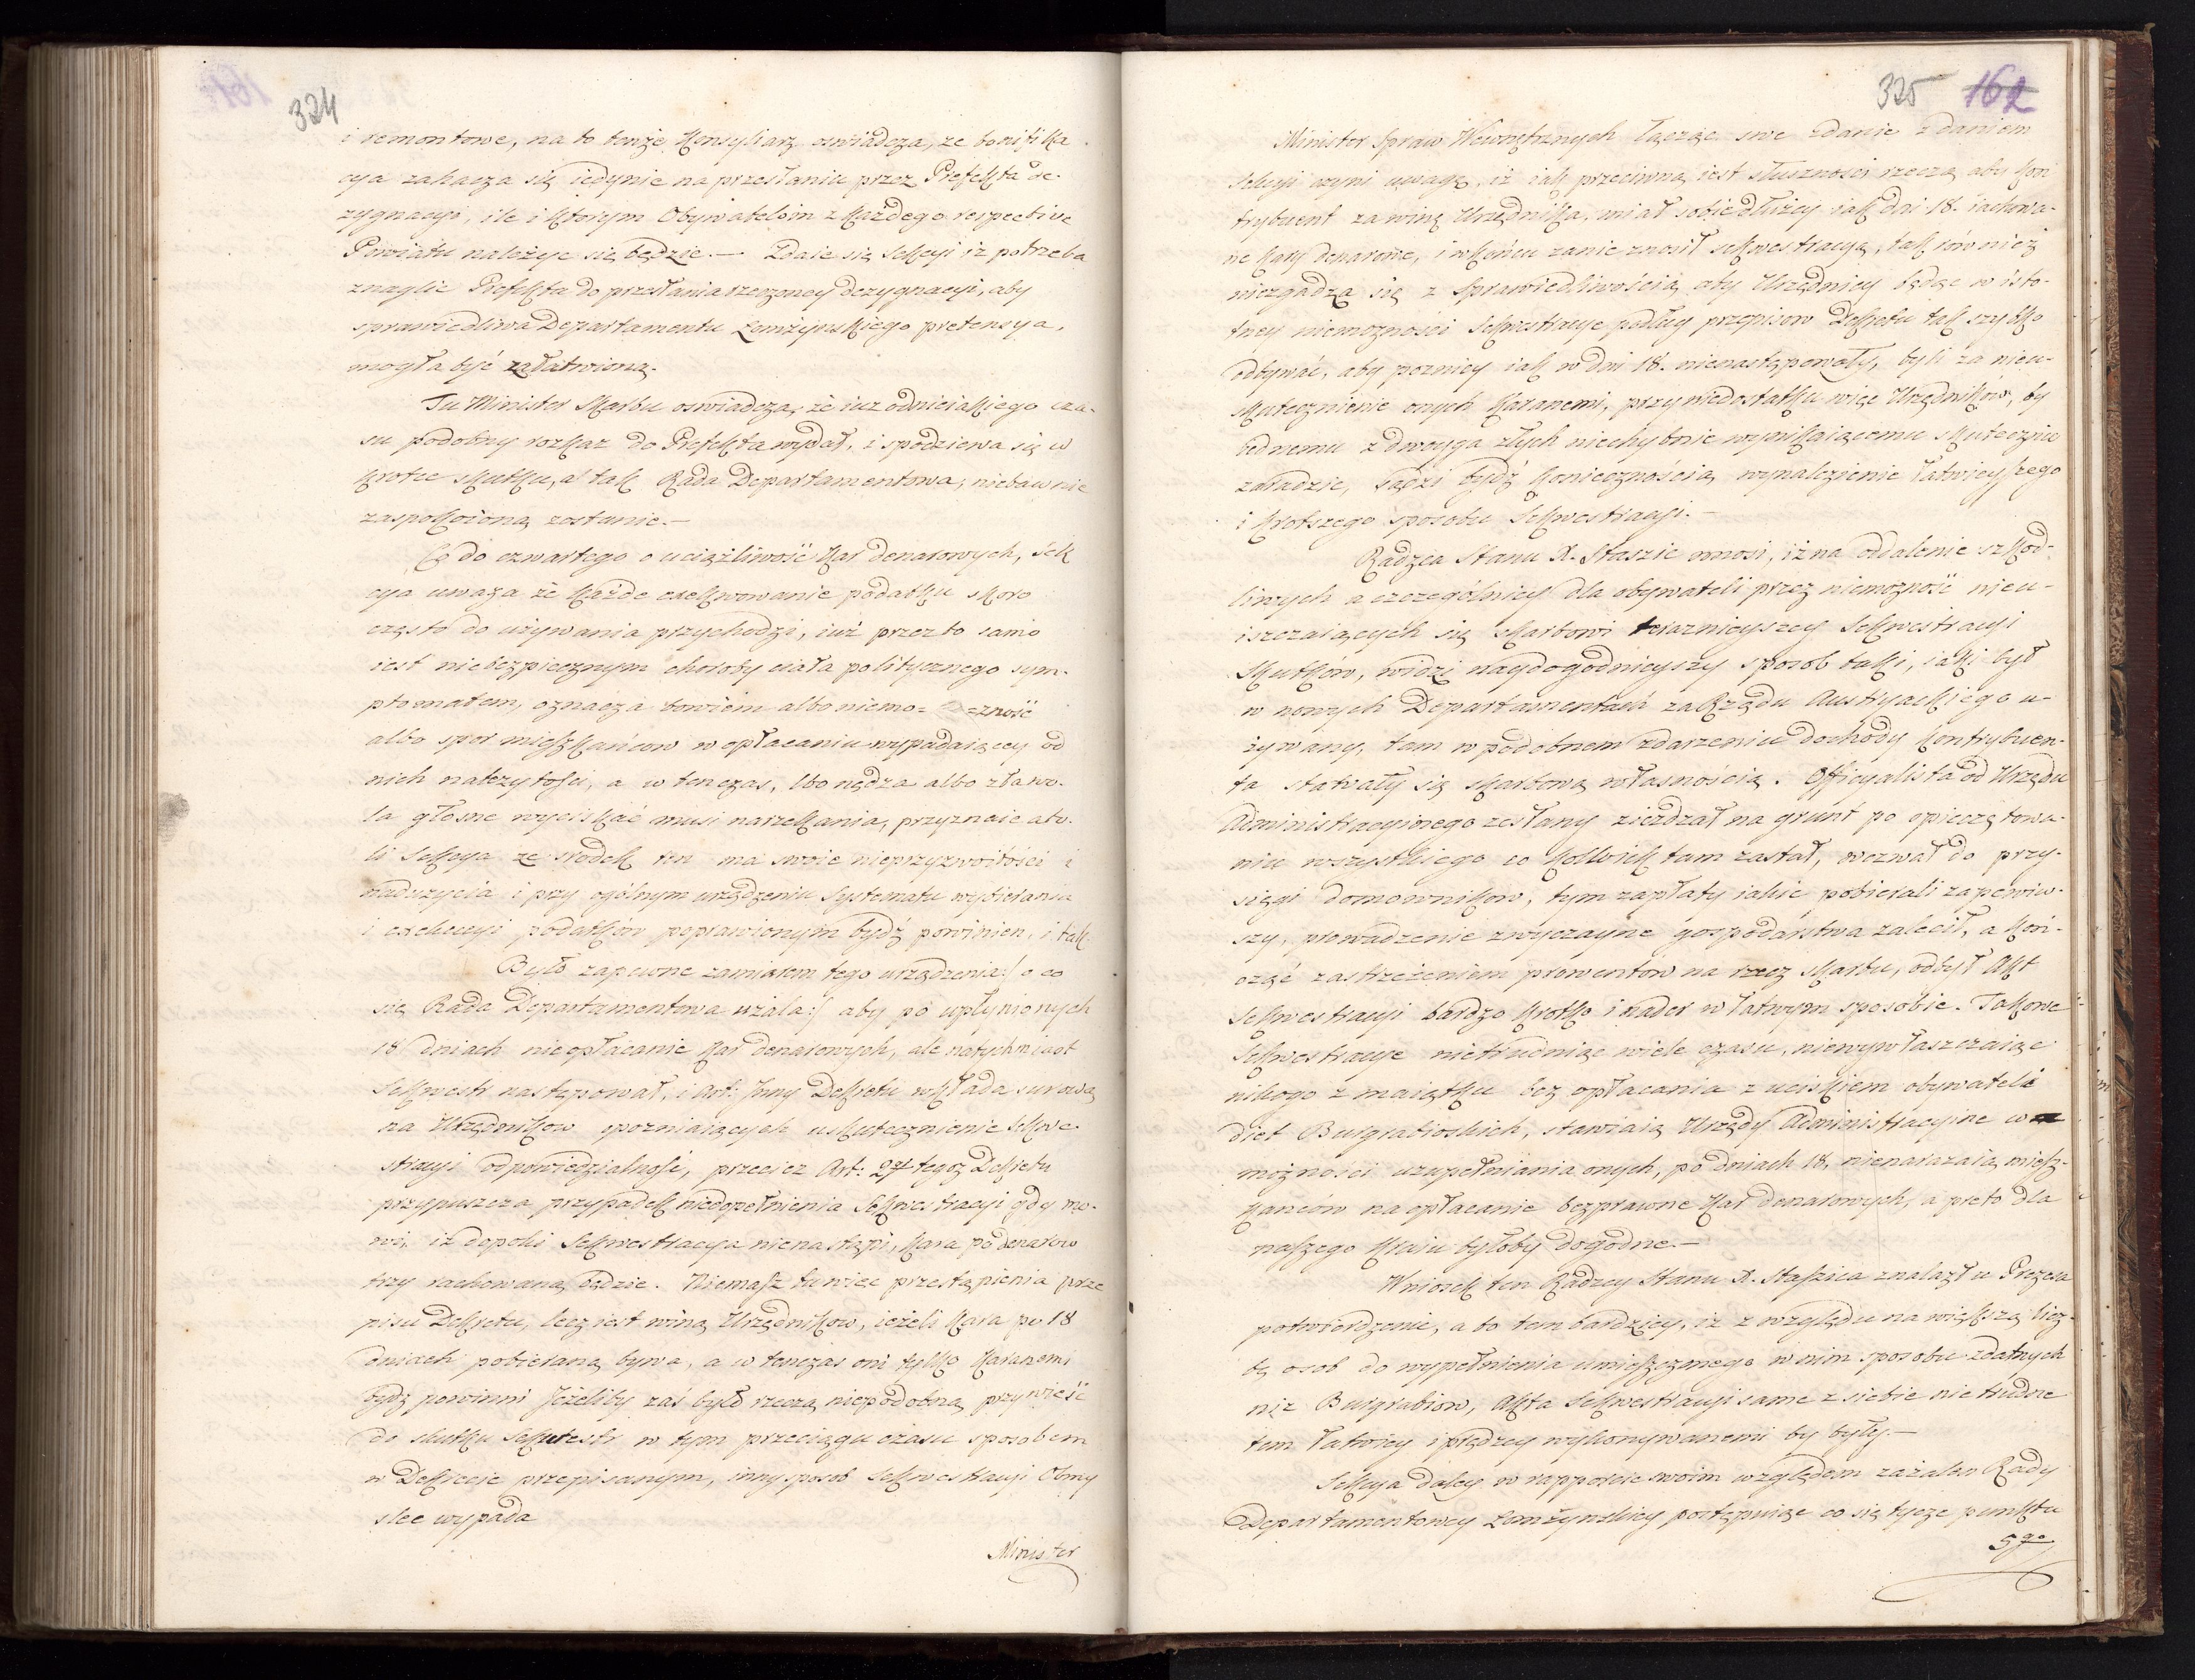 324
i remontowe, na to tenże Konsyliarz oswiadcza, ze bonifika
cya zahacza się iedynie na przesłaniu przez Prefekta de-
zygnacyi, ile i ktorym Obywatelom z każdego respective
Powiatu należyć się będzie.— Zdaie się Sekcyi iz potrzeba
znaglić Prefekta do przesłania rzeczoney dezygnacyi, aby
sprawiedliwa Departamentu Łomżyńskiego pretensya,
mogła być załatwioną.
Tu Minister Skarbu oswiadcza, że iuz odnieiakiego cza-
su podobny rozkaz do Prefekta wydał, i spodziewa się w
krotce skutku, a tak Rada Departamentowa, niebawnie
zaspokoioną zostanie.—
Co do czwartego o uciążliwość kar denarowych, Sek
cya uwaza że każde exekwowanie podatku skoro
często do używania przychodzi, iuż przez to samo
iest niebezpiecznym choroby ciała politycznego sym-
ptomatem, oznacza bowiem albo niemo= =zność
albo spor mieszkańcow w opłacaniu wypadaiącey od
nich należytości, a w tenczas, lbo nędza albo zła wo-
la głosne wyciskać musi narzekania, przyznaie ato-
li Sekcya ze srodek ten ma swoie nieprzyzwoitości i
naduzycia i przy ogólnym urządzeniu Systematu wybierania
i exekucyi podatków poprawionym bydź powinien, i tak.
Było zapewne zamiarem tego urządzenia :/ o co
się Rada Departamentowa uzala :/ aby po upłynionych
18 dniach nieopłacanie kar denarowych, ale natychmiast
Sekwestr następował, i Art: Inny Dekretu wkłada surową
na Urzędnikow opozniaiących uskutecznienie Sekwe-
stracyi odpowiedzialność, przeciez Art: 27 tegoz Dekretu
przypuszcza przypadek niedopełnienia Sekwestracyi gdy mo-
wi, iż dopoki Sekwestracya nienastąpi, kara po denarow
trzy rachowaną będzie. Niemasz tu więc przestąpienia prze
pisu Dekretu, lecz iest winą Urzędnikow, ieżeli kara po 18
dniach pobieraną bywa, a w tenczas oni tylko karanemi
bydz powinni Jeżeliby zaś było rzeczą niepodobną przywieść
do skutku sekwestr w tym przeciągu czasu sposobem
w Dekrecie przepisanym, inny sposob Sekwestracyi Obmy
slec wypada
Minister
325 162
Minister Spraw Wewnętrznych łącząc swe zdanie zdaniem
Sekcyi czyni uwagę, iż iak przeciwną iest słuszności rzeczą aby kon
trybuent za winę Urzędnika, miał sobie dłużey iak dni 18. rachowa-
ne kary denarowe, i wkońcu zanie znosił sekwestracyą, tak również
niezgadza się z Sprawiedliwością aby Urzędnicy będąc w isto-
tney niemożności Sekwestracye podług przepisow Dekretu tak szybko
odbywać, aby pozniey iak w dni 18. nienastępowały, byli za nieu-
skutecznienie onych karanemi, przy niedostatku więc Urzędników, by
iednemu z dwoyga złych niechybnie wynikaiącemu skutecznie
zaradzić, sądzi bydź koniecznością wynalezienie łatwieyszego
i krotszego sposobu Sekwestracyi.—
Radzca Stanu X. Staszic wnosi, iż na oddalenie szkod-
liwych a szczególniey dla obywateli przez niemożność nieu-
iszczaiących się Skarbowi teraznieyszey Sekwestracyi
Skutków, widzi naydogodnieyszy sposob taki, iaki był
w nowych Departamentach za Rządu Austryackiego u-
żywany, tam w podobnem zdarzeniu dochody kontrybuen-
ta stawały się skarbową własnością. Officyalista od Urzędu
Administracyinego zesłany ziezdzał na grunt po opieczętowa-
niu wszystkiego co kolwiek tam zastał, wezwał do przy-
sięgi domownikow, tym zapłaty iakie pobierali zapewiw-
szy, prowadzenie zwyczayne gospodarstwa zalecił, a koń-
cząc zastrzeżeniem prowentow na rzecz skarbu, odbył Akt
Sekwestracyi bardzo krotko i nader w łatwym sposobie. Takowe
Sekwestracye nietrudniąc wiele czasu, niewywłaszczaiąc
nikogo z maiątku bez opłacania z uciskiem obywateli
diet Burgrabioskich, stawiaią Urzędy Administracyine w
możności uzupełniania onych, po dniach 18, nienarazaią miesz-
kancow na opłacanie bezprawne kar denarowych, a przeto dla
naszego kraiu byłoby dogodne.—
Wniosek ten Radzcy Stanu X. Staszica znalazł u Prezesa
potwierdzenie, a to tem bardziey, iz z względu na większą licz-
bę osob do wypełnienia umieszczonego w nim sposobu zdatnych
niz Burgrabiow, Akta Sekwestracyi same z siebie nietrudne
tem łatwiey i prędzey wykonywanemi by były.—
Sekcya daley w rapporcie swoim względem zażaleń Rady
Departamentowey Łomżynskiey postępuiąc co się tycze punktu
5go